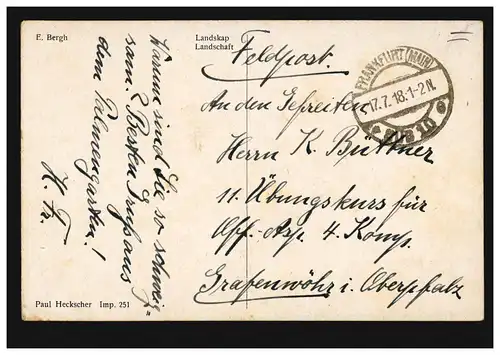 E. Bergh
Landskap
Landschaft
Feldpost.
FRANKFURT (MAIN)
17.7.18.1-2 N.
An den Gefreiten
Herrn K. Büttner
11. Übungskurs für
Off.-Asp. 4. Komp.
Grafenwöhr i. Oberpfalz
Warum sind Sie so schweig-
sam? Besten Gruß aus
dem Palmengarten!
H. Fr.
Paul Heckscher Imp. 251